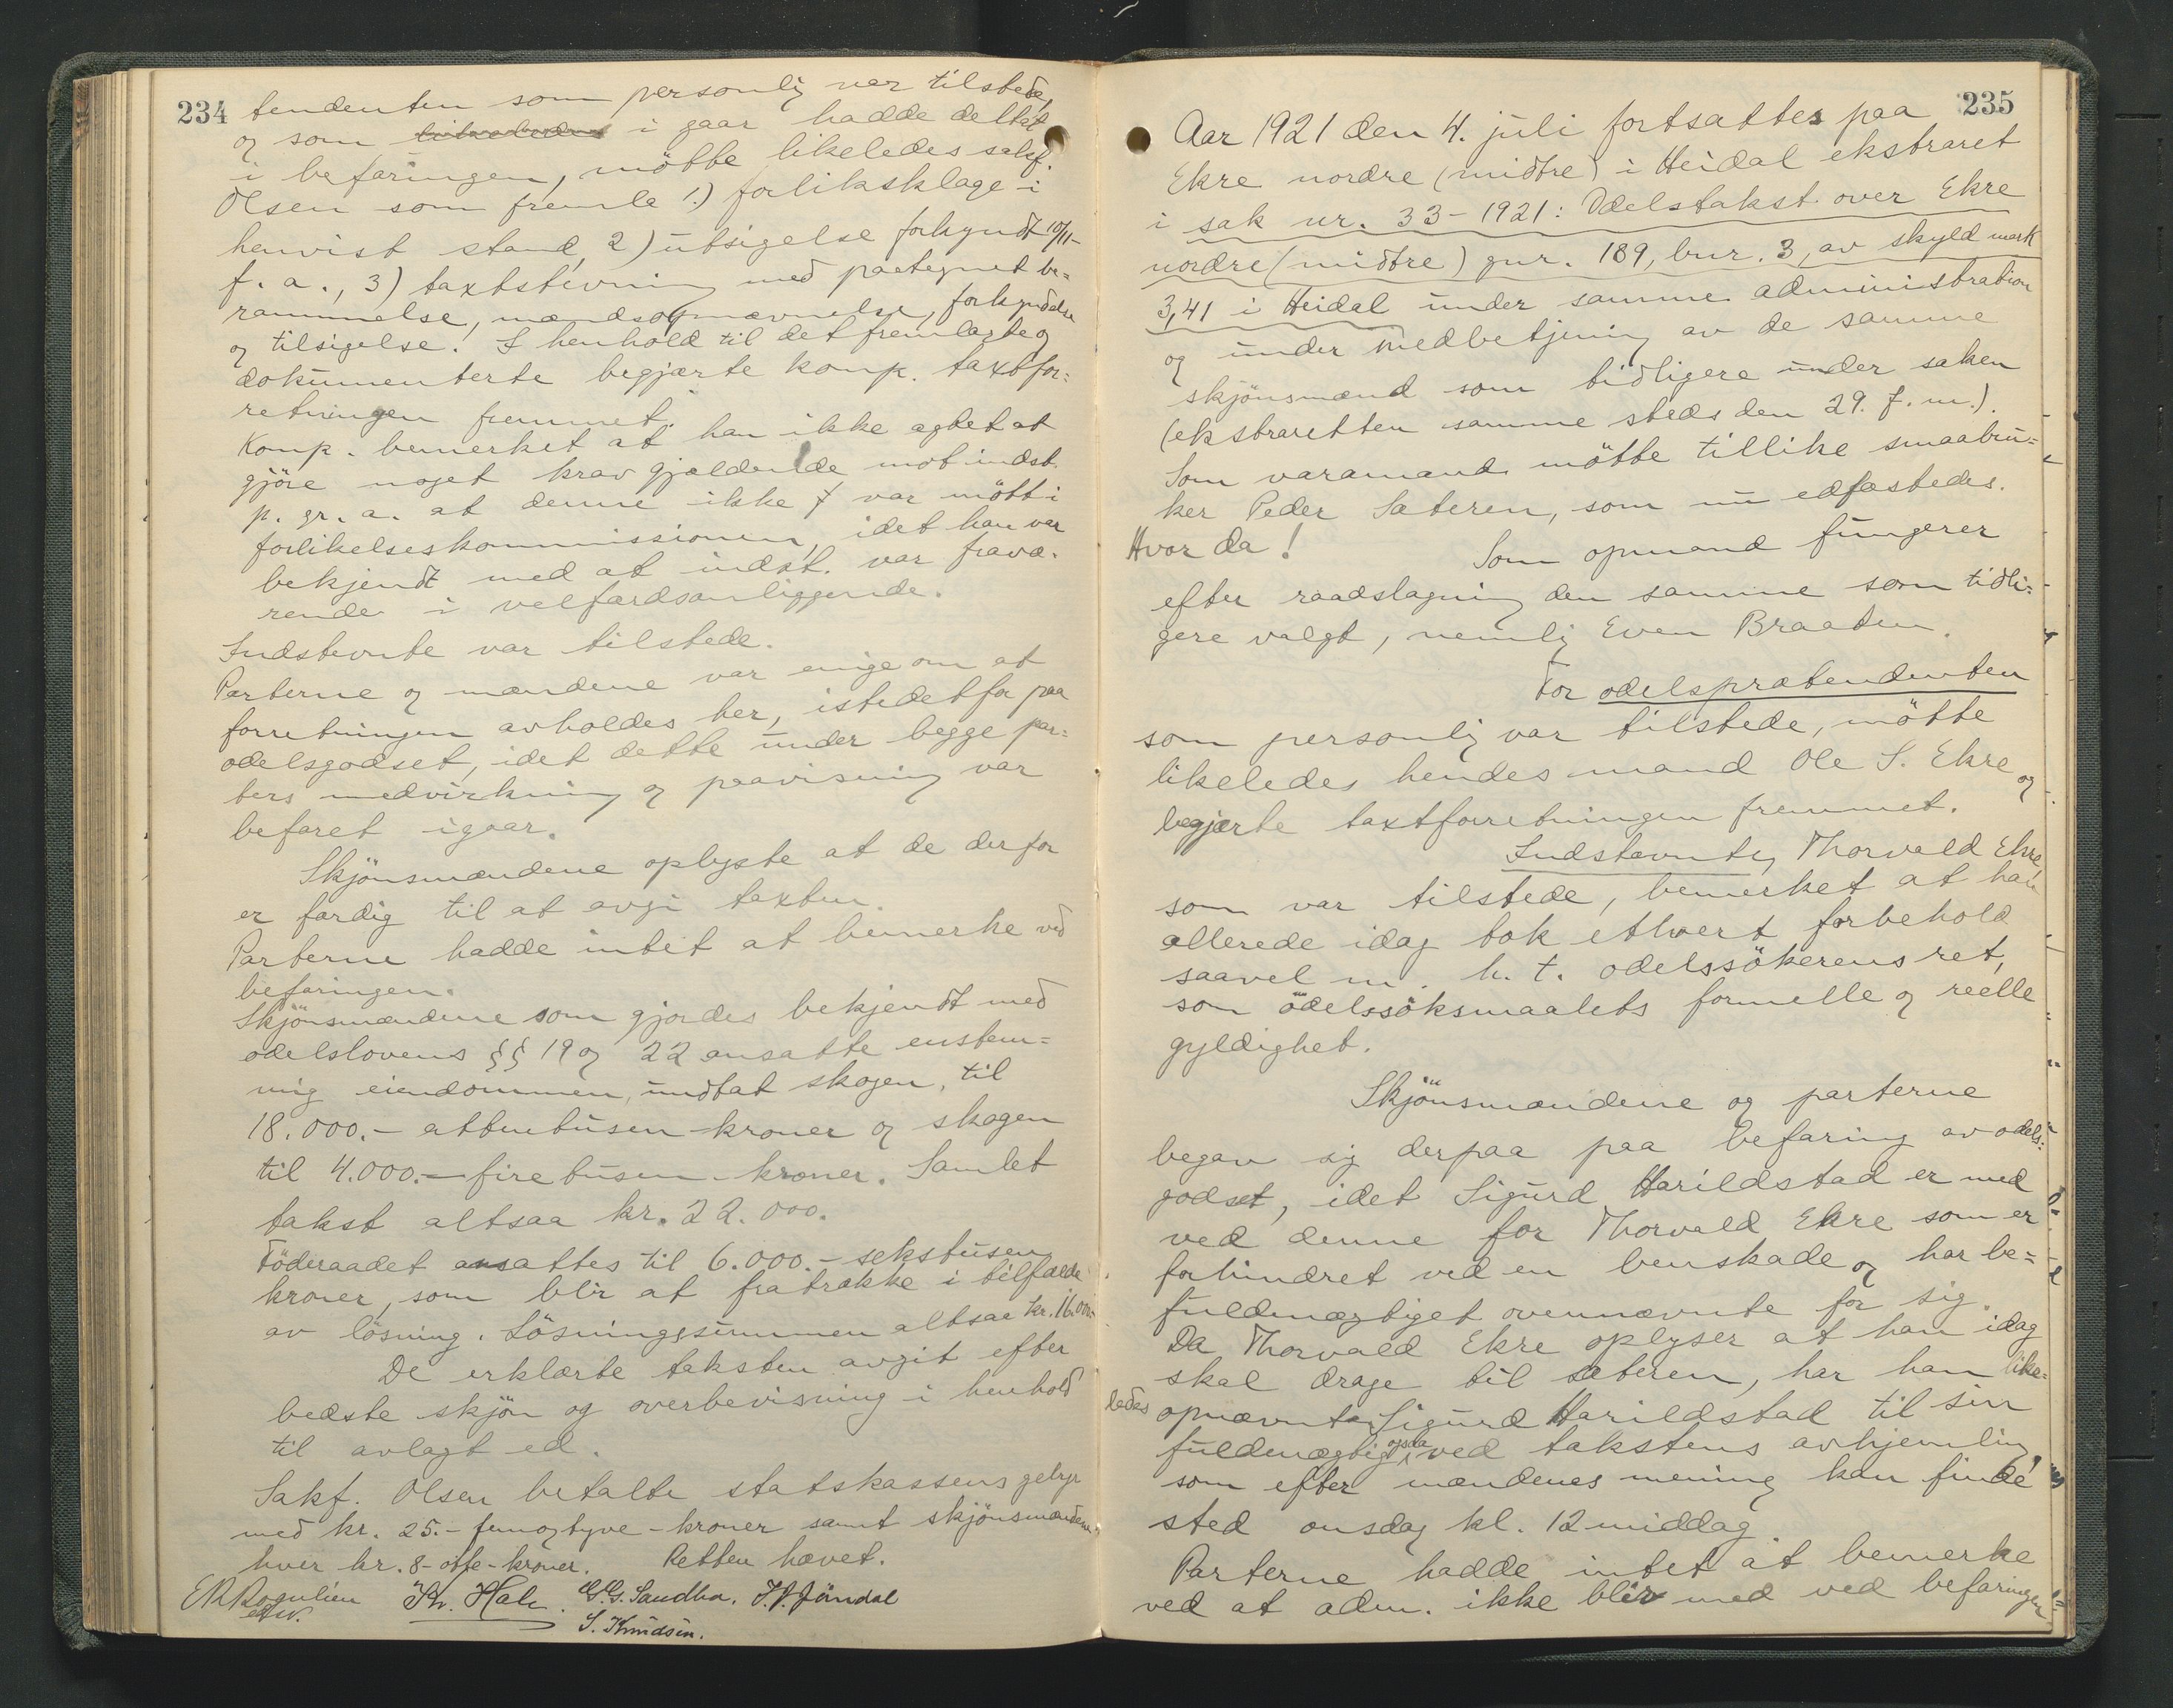 234
tendenten som personlig var tilstede,
og som i gaar hadde deltat
i befaringen, mötte likeledes sakf.
Olsen som fremla 1.) forliksklage i
henvist stand, 2) utsigelse forkyndt 10/11-
f. a., 3) taxtstevning med paategnet be=
rammelse, mændsopnævnelse, forkyndelse
og tilsigelse! I henhold til det fremlagte og
dokumenterte begjærte komp. taxtfor=
retningen fremmet.
Komp. bemerket at han ikke agtet at
gjöre noget krav gjældende mot indst.
p. gr. a. at denne ikke var mött i
forlikelseskommissionen, idet han var
bekjendt med at indst. var fravæ-
rende i velfærdsanliggende.
Indstevnte var tilstede.
Parterne og mændene var enige om at
forretningen avholdes her, istedetfor paa
odelsgodset, idet dette under begge par=
ters medvirkning og paavisning var
befaret igaar.
Skjönsmændene oplyste at de derfor
er færdig til at avgi taxten.
Parterne hadde intet at bemerke ved
befaringen.
Skjönsmændene som gjordes bekjendt med
odelslovens §§ 19 og 22 ansatte enstem=
mig eiendommen, undtat skogen, til
18.000.- attentusen-kroner og skogen
til 4.000.- firetusen-kroner. Samlet
takst altsaa kr. 22.000.
Föderaadet ansattes til 6.000.- sekstusen
kroner, som blir at fratrække i tilfælde
av lösning. Lösningssummen altsaa kr. 16.000.-
De erklærte taksten avgit efter
bedste skjön og overbevisning i henhold
til avlagt ed.
Sakf. Olsen betalte statskassens gebyr
med kr. 25.- femogtyve-kroner samt skjönsmændene
hver kr. 8- otte-kroner. Retten hævet.
G. G. Sandbu. J. P. Jöndal
S. Knudsen.
235
Aar 1921 den 4. juli fortsattes paa
Ekre nordre (midtre) i Heidal ekstraret
i sak nr. 33-1921: Odelstakst over Ekre
nordre (midtre) gnr. 189, bnr. 3, av skyld mark
3,41 i Heidal under samme administration
og under medbetjening av de samme
skjönsmænd som tidligere under saken
(ekstraretten samme steds den 29. f. m.).
Som varamand mötte tillike smaabru=
ker Peder Sæteren, som nu edfæstedes.
Hvor da!
Som opmand fungerer
efter raadslagning den samme som tidli=
gere valgt, nemlig Even Braaten.
For odelsprætendenten
som personlig var tilstede, mötte
likeledes hendes mand Ole S. Ekre og
begjærte taxtforretningen fremmet.
Indstevnte, Thorvald Ekre,
som var tilstede, bemerket at han
allerede idag tok ethvert forbehold
saavel m. h. t. odelssökerens ret,
som odelssöksmaalets formelle og reelle
gyldighet.
Skjönsmændene og parterne
begav sig derpaa paa befaring av odels=
godset, idet Sigurd Harildstad er med
ved denne for Thorvald Ekre som er
forhindret ved en benskade og har be=
fuldmægtiget ovennævnte for sig.
Da Thorvald Ekre oplyser at han idag
skal drage til sæteren, har han like=
ledes opnævnt Sigurd Harildstad til sin
fuldmægtig ogsaa ved takstens avhjemling,
som efter mændenes mening kan finde
sted onsdag kl. 12 middag.
Parterne hadde intet at bemerke
ved at adm. ikke blir med ved befaringen